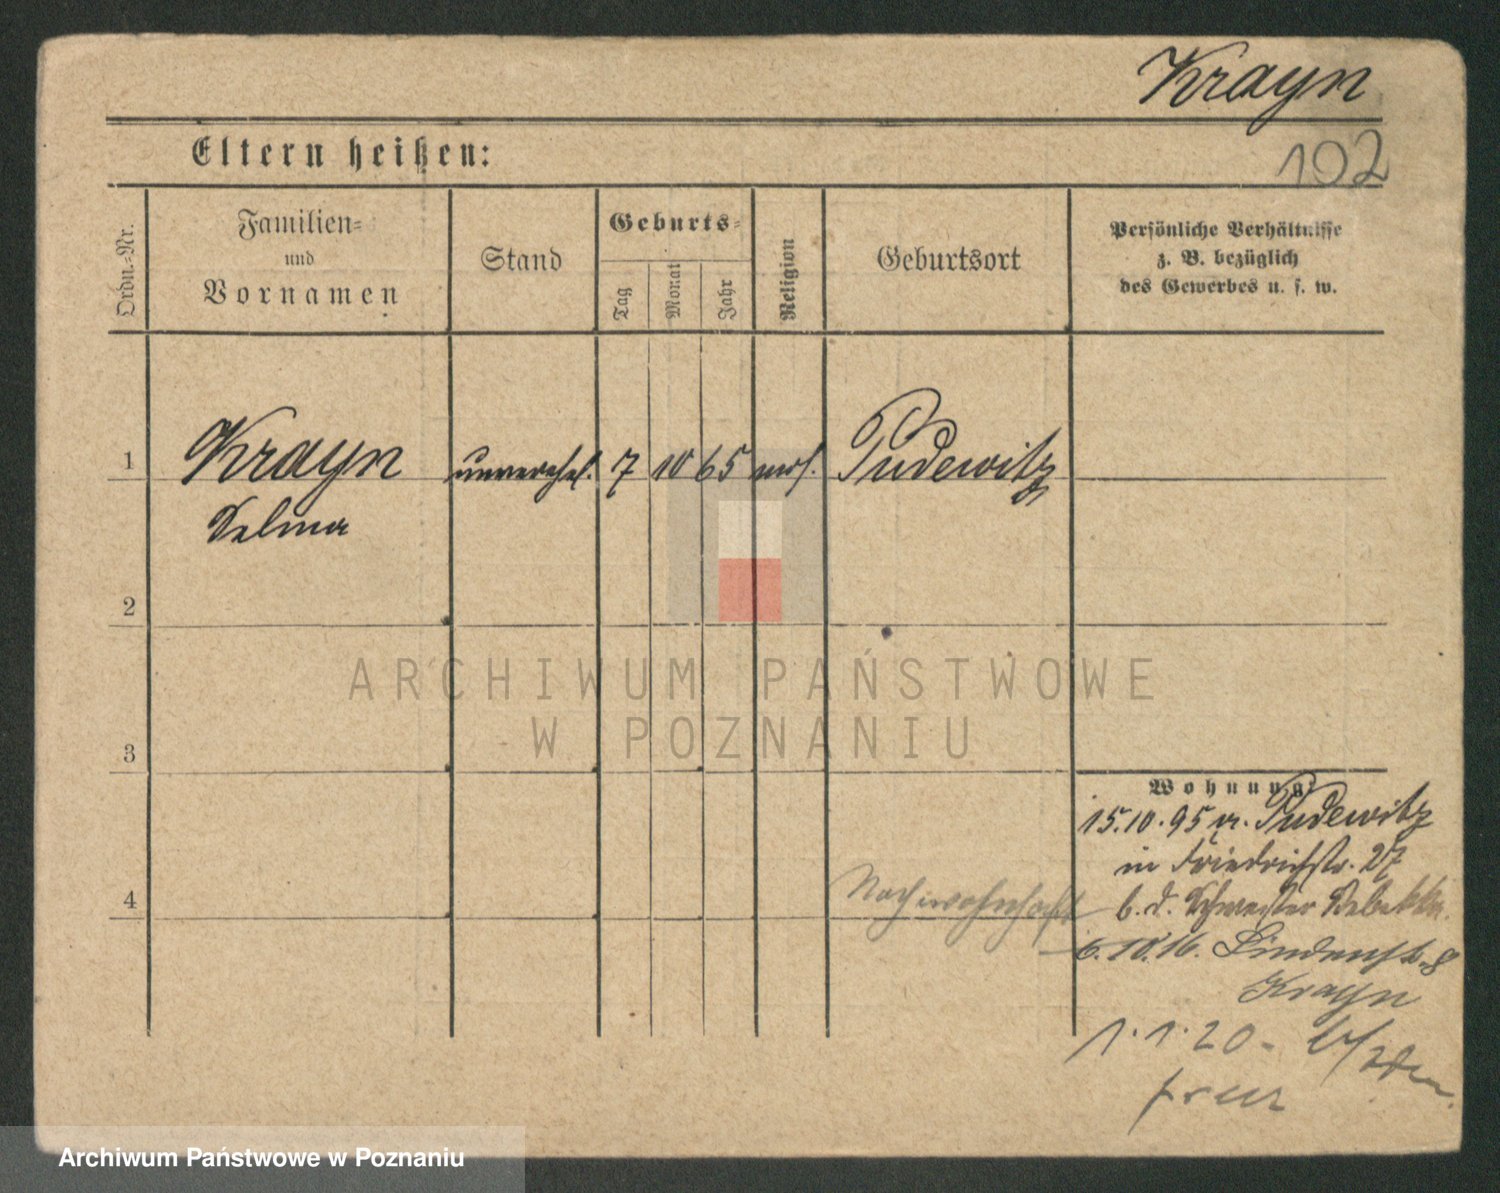 Krayn
102
Eltern heißen:
Ordn.-Nr.
Familien-
und
Vornamen
Stand
Geburts-
Tag
Monat
Jahr
Religion
Geburtsort
Persönliche Verhältnisse
z. B. bezüglich
des Gewerbes u. s. w.
1
Krayn
Selma
unverehel.
7
10
65
mos.
Pudewitz
2
3
4
Wohnung
15.10.95 v. Pudewitz
in Friedrichstr. 27
b. d. Schwester Rebekka
6.10.16. Lindenstr. 8
Krayn
1.1.20
ARCHIWUM PAŃSTWOWE
W POZNANIU
Archiwum Państwowe w Poznaniu